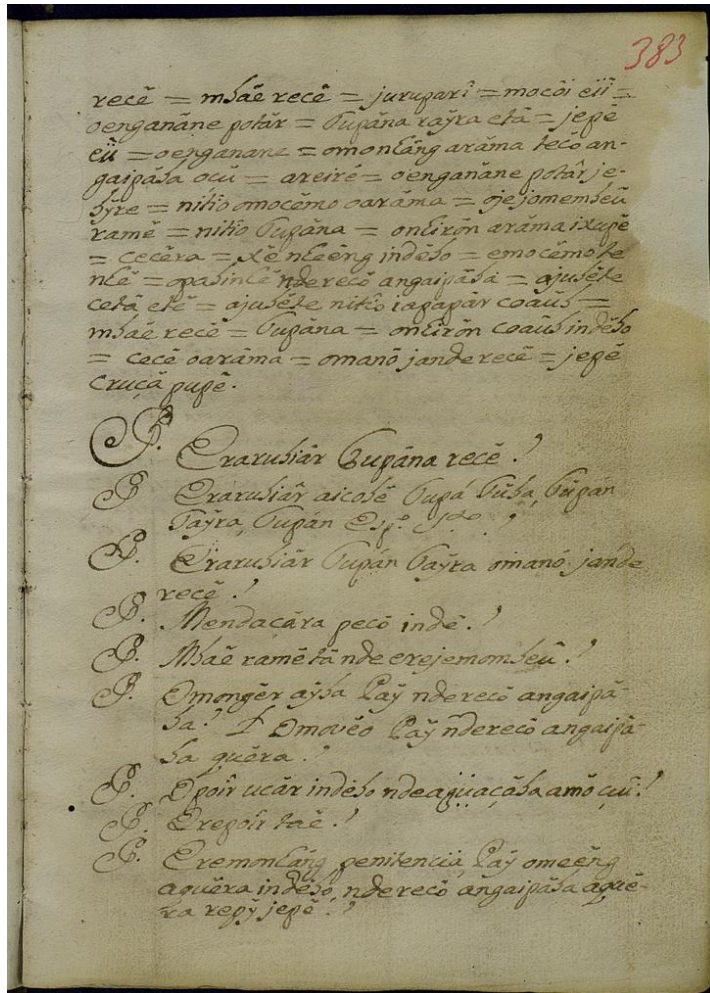 383
recē = mhaē recē = jurupari = mocôi eiī =
oenganāne potâr = Tupāna raÿra etā = jepē
eiī = oenganane = omonhāng arāma tecō an-
gaipāba ocū = areirē = oenganāne potâr je-
bÿre = nitio omocēmo oarāma = ojejomemheū
ramē = nitio Tupāna = onhirōn arāma ixupē
= cecēra = xē nheēng indēbo = emocēmo te
nhē = opabinhē nderecō angaipāba = ajubēte
cetā etē = ajubēte nitio iapapār coaūb =
mbaē recē = Tupāna = onhirōn coaūb indēbo
= cecē oarāma = omanō jande recē = jepē
cruçā pupē.
P. Erarubiār Tupāna recē?
P Erarubiār aicobē Tupá Tuba, Tupán
Taÿra, Tupán Esp.º S.to ?
P. Erarubiār Tupán Taÿra omanó jande
recē?
P. Mendaçāra pecō indē?
P. Mbaē ramē tā nde erejemombeū?
P. Omongēr aÿba Paÿ nderecō angaipā-
ba? Omovēo Paÿ nderecō angaipā-
ba quēra?
P. Opoîr ucār indēbo ndeaguaçāba amō çuī?
P. Erepoîr taē?
P. Eremonhāng penitencia Paÿ omeēng
aquēra indēbo, nderecō angaipāba aquē-
ra repÿ jepē?